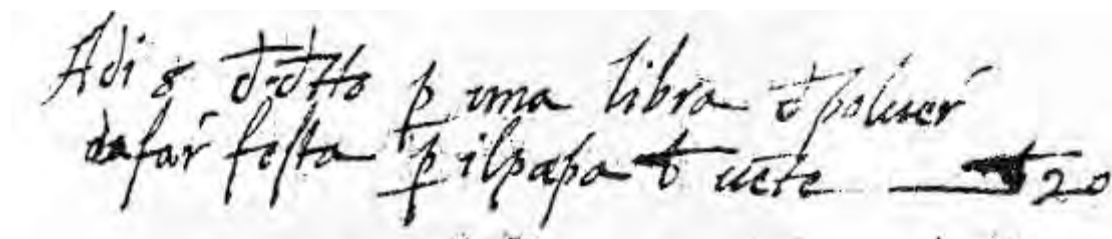 Adi 8 đ đtto ꝑ una libra đ poluer
da far festa ꝑ il papa đ uete — 20